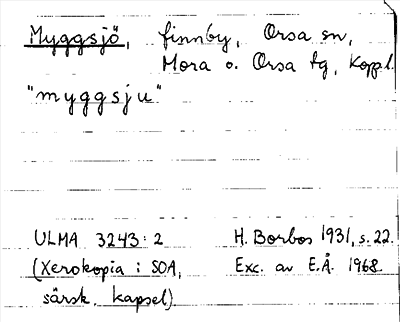 Myggsjö, finnby, Orsa sn,
Mora o. Orsa tg, Koppl.
"myggsju"
ULMA 3243:2 H. Borbos 1931, s. 22.
(Xerokopia i SOA, Exc. av E.Å. 1968.
särsk. kapsel)